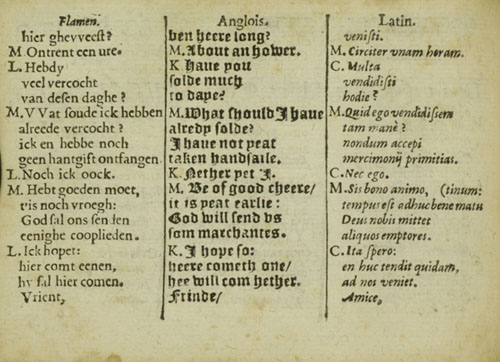 Flamen.
hier ghevveest?
M. Ontrent een ure.
L. Hebdy
veel vercocht
van desen daghe?
M. VVat soude ick hebben
alreede vercocht?
ick en hebbe noch
geen hantgift ontfangen.
L. Noch ick oock.
M. Hebt goeden moet,
t'is noch vroegh:
God sal ons senden
eenighe cooplieden.
L. Ick hopet:
hier comt eenen,
hy sal hier comen.
Vrient,
Anglois.
ben heere long?
M. About an hower.
K Have you
solde much
to daye?
M. What should I have
alredy solde?
I have not yeat
taken handsaile.
K. Nether yet I.
M. Be of good cheere/
it is yeat earlie:
God will send vs
som marchantes.
K. I hope so:
heere cometh one/
hee will com hether.
Frinde/
Latin.
venisti.
M. Circiter vnam horam.
C. Multa
vendidisti
hodie?
M. Quid ego vendidissem
tam manè?
nondum accepi
mercimonij primitias.
C. Nec ego.
M. Sis bono animo, (tinum:
tempus est adhuc bene matu
Deus nobis mittet
aliquos emptores.
C. Ita spero:
en huc tendit quidam,
ad nos veniet.
Amice,